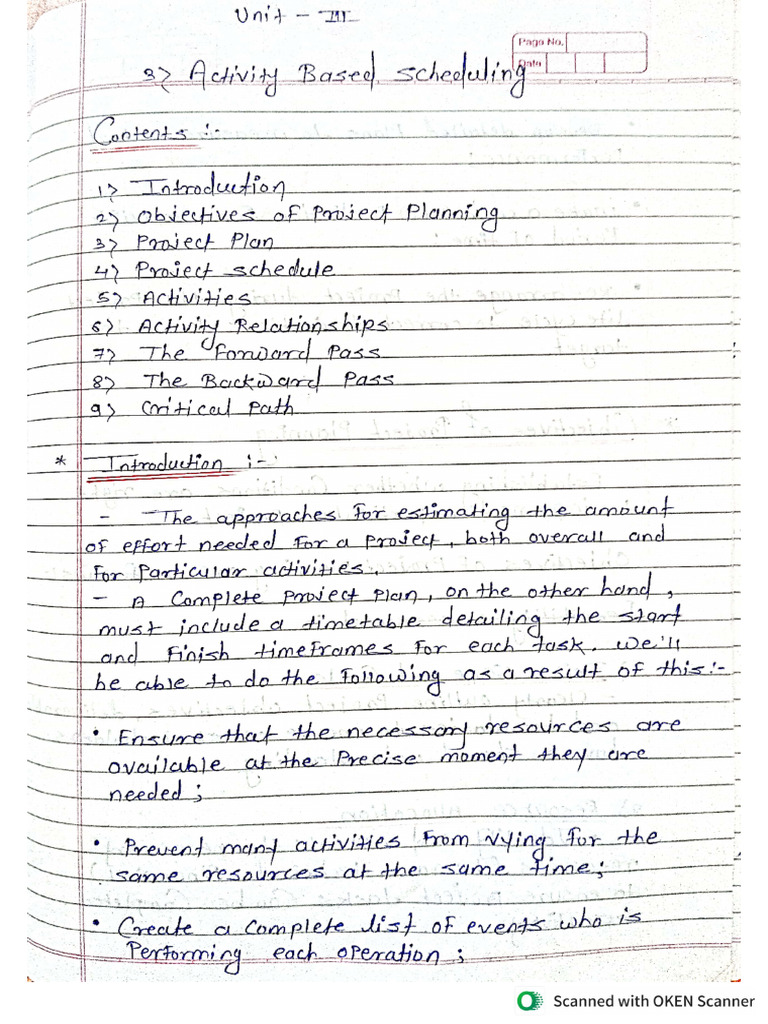 Unit - III
Page No.
Date
3> Activity Based Scheduling
Contents :-
1> Introduction
2> Objectives of Project Planning
3> Project Plan
4> Project Schedule
5> Activities
6> Activity Relationships
7> The Forward Pass
8> The Backward Pass
9> Critical Path
* Introduction :-
- The approaches for estimating the amount
of effort needed for a project, both overall and
for particular activities.
- A complete project plan, on the other hand,
must include a timetable detailing the start
and finish timeframes for each task. We'll
be able to do the following as a result of this:-
• Ensure that the necessary resources are
available at the precise moment they are
needed;
• Prevent many activities from vying for the
same resources at the same time;
• Create a complete list of events who is
performing each operation;
Scanned with OKEN Scanner